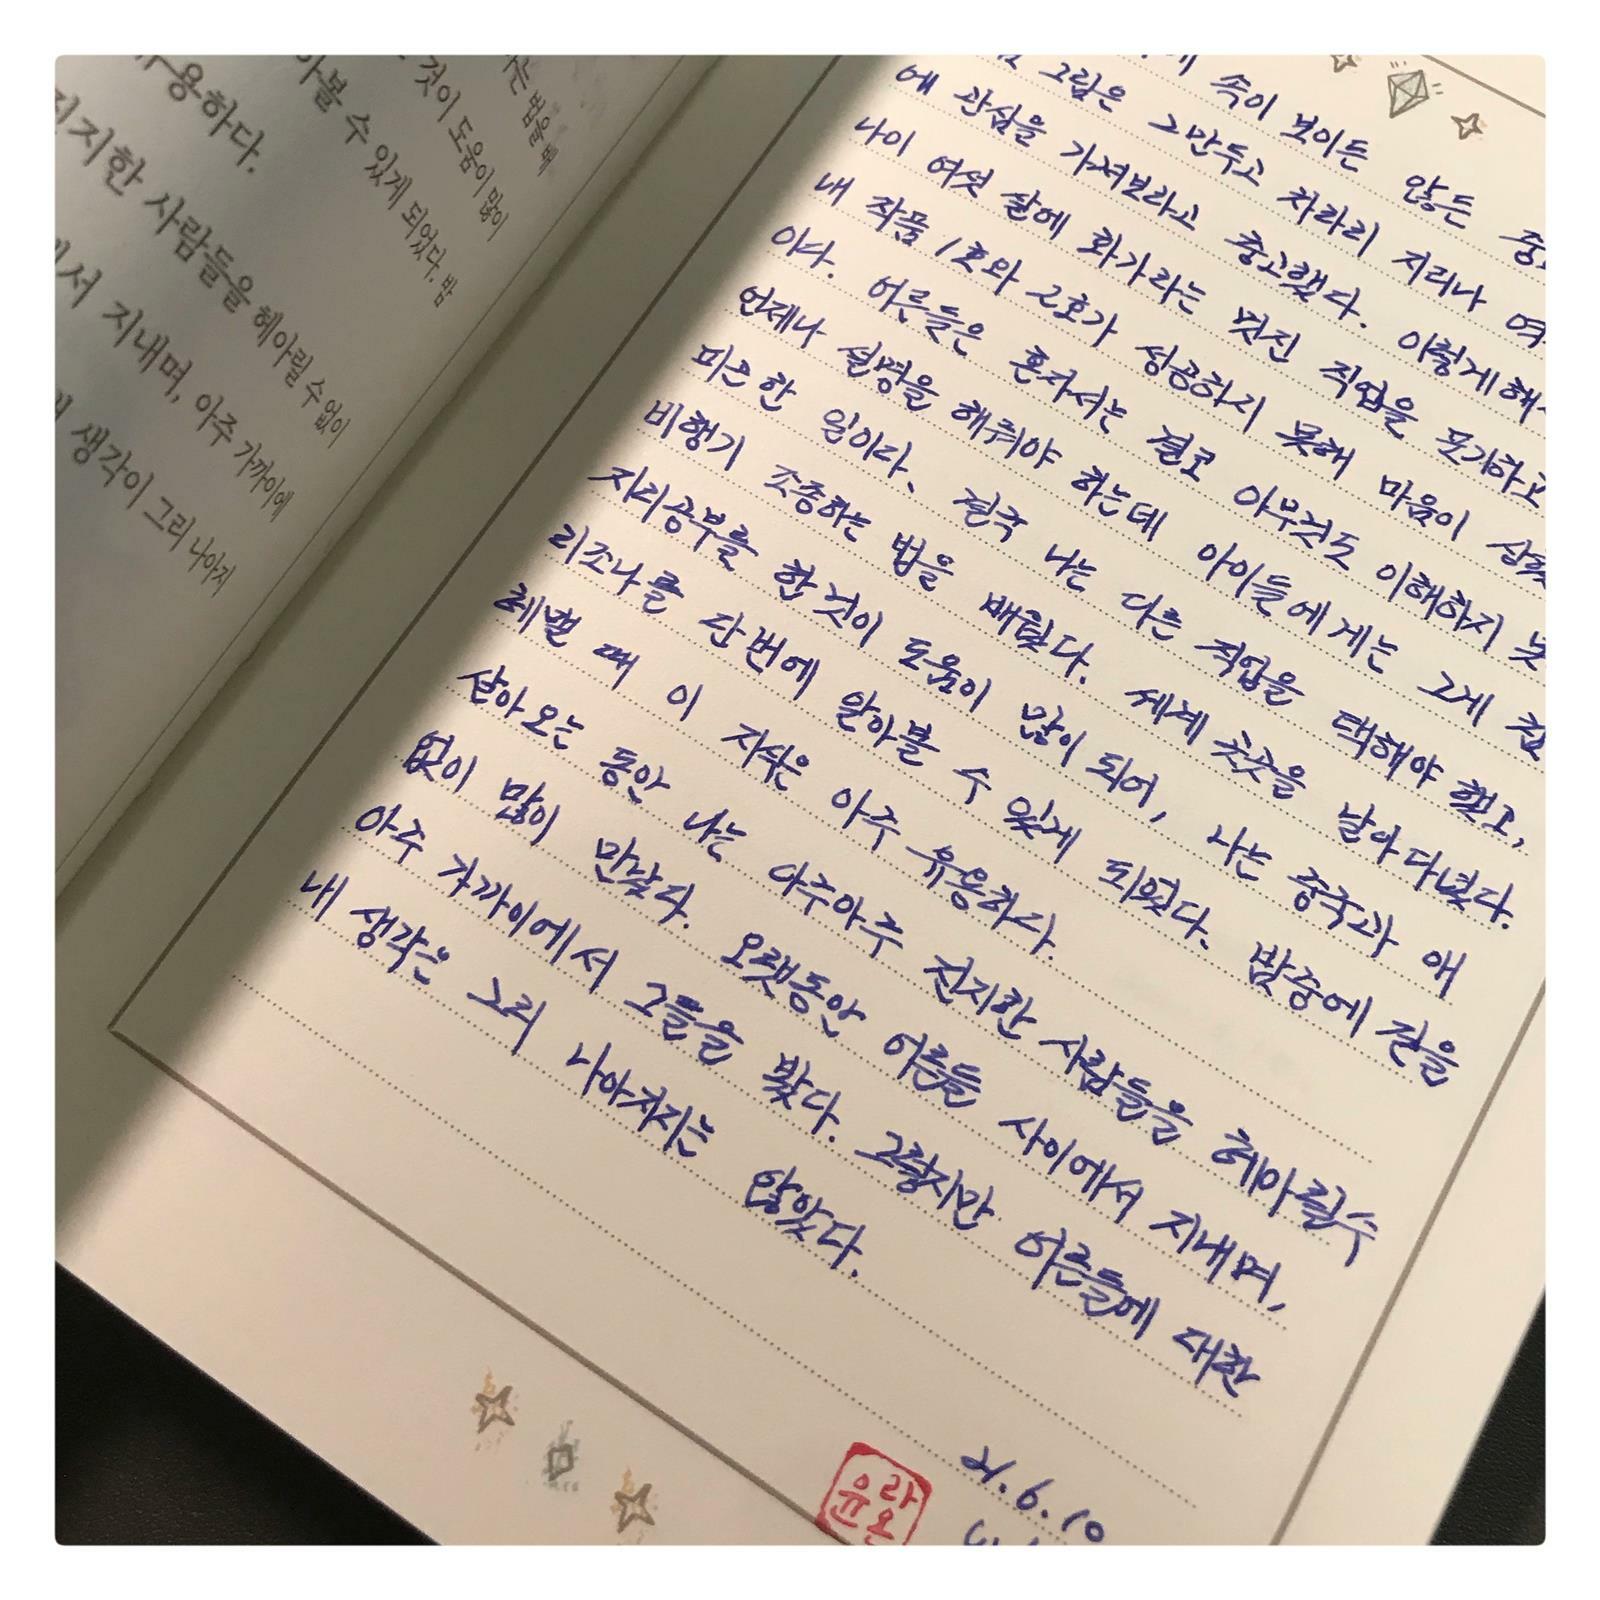 는 법을 배
것이 도움이 많이
아볼 수 있게 되었다. 밤
유용하다.
진지한 사람들을 헤아릴 수 없이
에서 지내며, 아주 가까이에
생각이 그리 나아지
속이 보이든 않든
그림은 그만두고 차라리 지리나
에 관심을 가져보라고 충고했다. 이렇게 해
나이 여섯 살에 화가라는 멋진 직업을 포기하고
내 작품 1호와 2호가 성공하지 못해 마음이 상했
이다. 어른들은 혼자서는 결코 아무것도 이해하지 못
언제나 설명을 해줘야 하는데 아이들에게는 그게
피곤한 일이다. 결국 나는 다른 직업을 택해야 했고,
비행기 조종하는 법을 배웠다. 세계 곳곳을 날아다녔다.
지리공부를 한 것이 도움이 많이 되어, 나는 중국과 애
리조나를 단번에 알아볼 수 있게 되었다. 밤중에 길을
헤맬 때 이 지식은 아주 유용하다.
살아오는 동안 나는 아주아주 진지한 사람들을 헤아릴수
없이 많이 만났다. 오랫동안 어른들 사이에서 지내며,
아주 가까이에서 그들을 봤다. 그렇지만 어른들에 대한
내 생각은 그리 나아지지는 않았다.
21.6.10
라
윤온